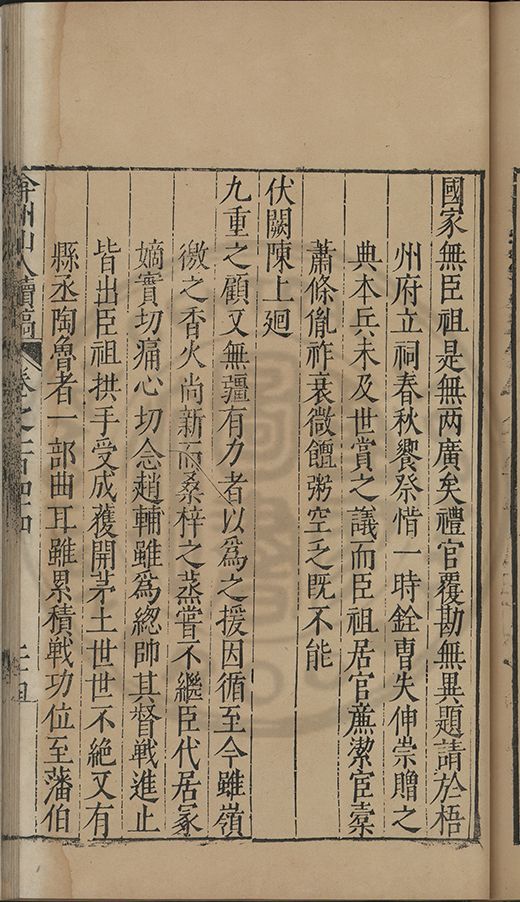 國家無臣祖是無两廣矣禮官覆勘無異題請於梧
州府立祠春秋饗祭惜一時銓曺失伸崇贈之
典本兵未及世賞之議而臣祖居官㢘潔宦橐
蕭條胤祚衰微饘粥空乏既不能
伏闕陳上廻
九重之顧又無疆有力者以爲之援因循至今雖嶺
徼之香火尚新而桑梓之蒸嘗不繼臣代居冡
嫡實切痛心切念趙輔雖爲總帥其督戰進止
皆出臣祖拱手受成䕶開茅土世世不絶又有
縣丞陶魯者一部曲耳雖累積戦功位至藩伯
弇州山人續稿 卷之一百四十四